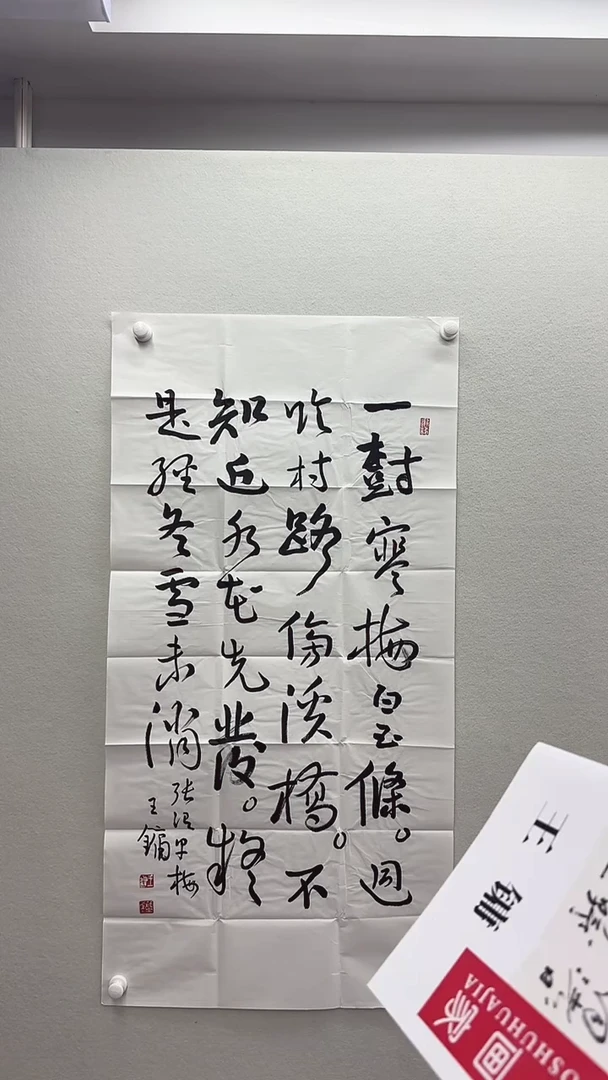 一樹寒梅白玉條。迥
臨村路傍溪橋。不
知近水花先發。疑
是經冬雪未消
張謂早梅
王鏞
王 鏞
画家
OSHUHUAJIA